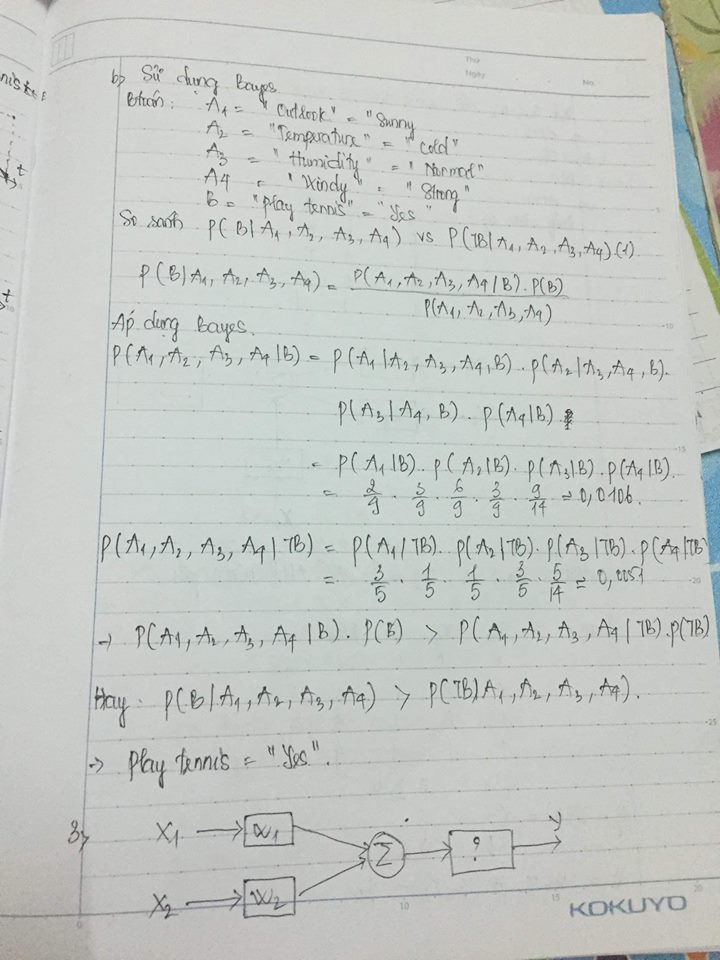 Thứ
Ngày
No.
b) Sử dụng Bayes
A1 = "Outlook" = "Sunny
A2 = "Temperature" = "Cold"
A3 = "Humidity" = "Normal"
A4 = "Windy" = "Strong"
B = "Play tennis" = "Yes"
So sánh P(B|A1, A2, A3, A4) vs P(7B|A1, A2, A3, A4).(1)
P(B|A1, A2, A3, A4) = P(A1, A2, A3, A4|B).P(B) / P(A1, A2, A3, A4)
Áp dụng Bayes.
P(A1, A2, A3, A4|B) = P(A1|A2, A3, A4, B).P(A2|A3, A4, B).
P(A3|A4, B).P(A4|B).
= P(A1|B).P(A2|B).P(A3|B).P(A4|B).
= 2/9 . 3/9 . 6/9 . 3/9 . 9/14 = 0,0106.
P(A1, A2, A3, A4|7B) = P(A1|7B).P(A2|7B).P(A3|7B).P(A4|7B)
= 3/5 . 1/5 . 1/5 . 3/5 . 5/14 = 0,0051
→ P(A1, A2, A3, A4|B).P(B) > P(A1, A2, A3, A4|7B).P(7B)
Hay: P(B|A1, A2, A3, A4) > P(7B|A1, A2, A3, A4).
→ Play tennis = "Yes".
3) X1 W1 Σ ? y
X2 W2
KOKUYO